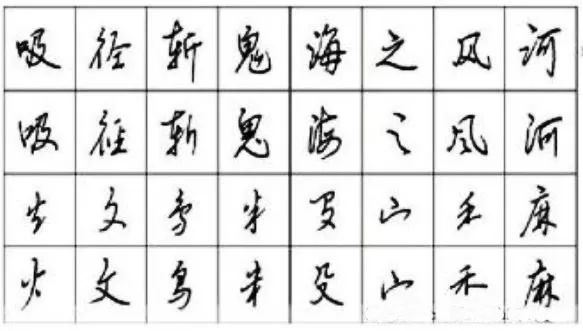 吸 径 斩 鬼 海 之 风 河
吸 径 斩 鬼 海 之 风 河
火 文 鸟 米 殳 山 禾 麻
火 文 鸟 米 殳 山 禾 麻